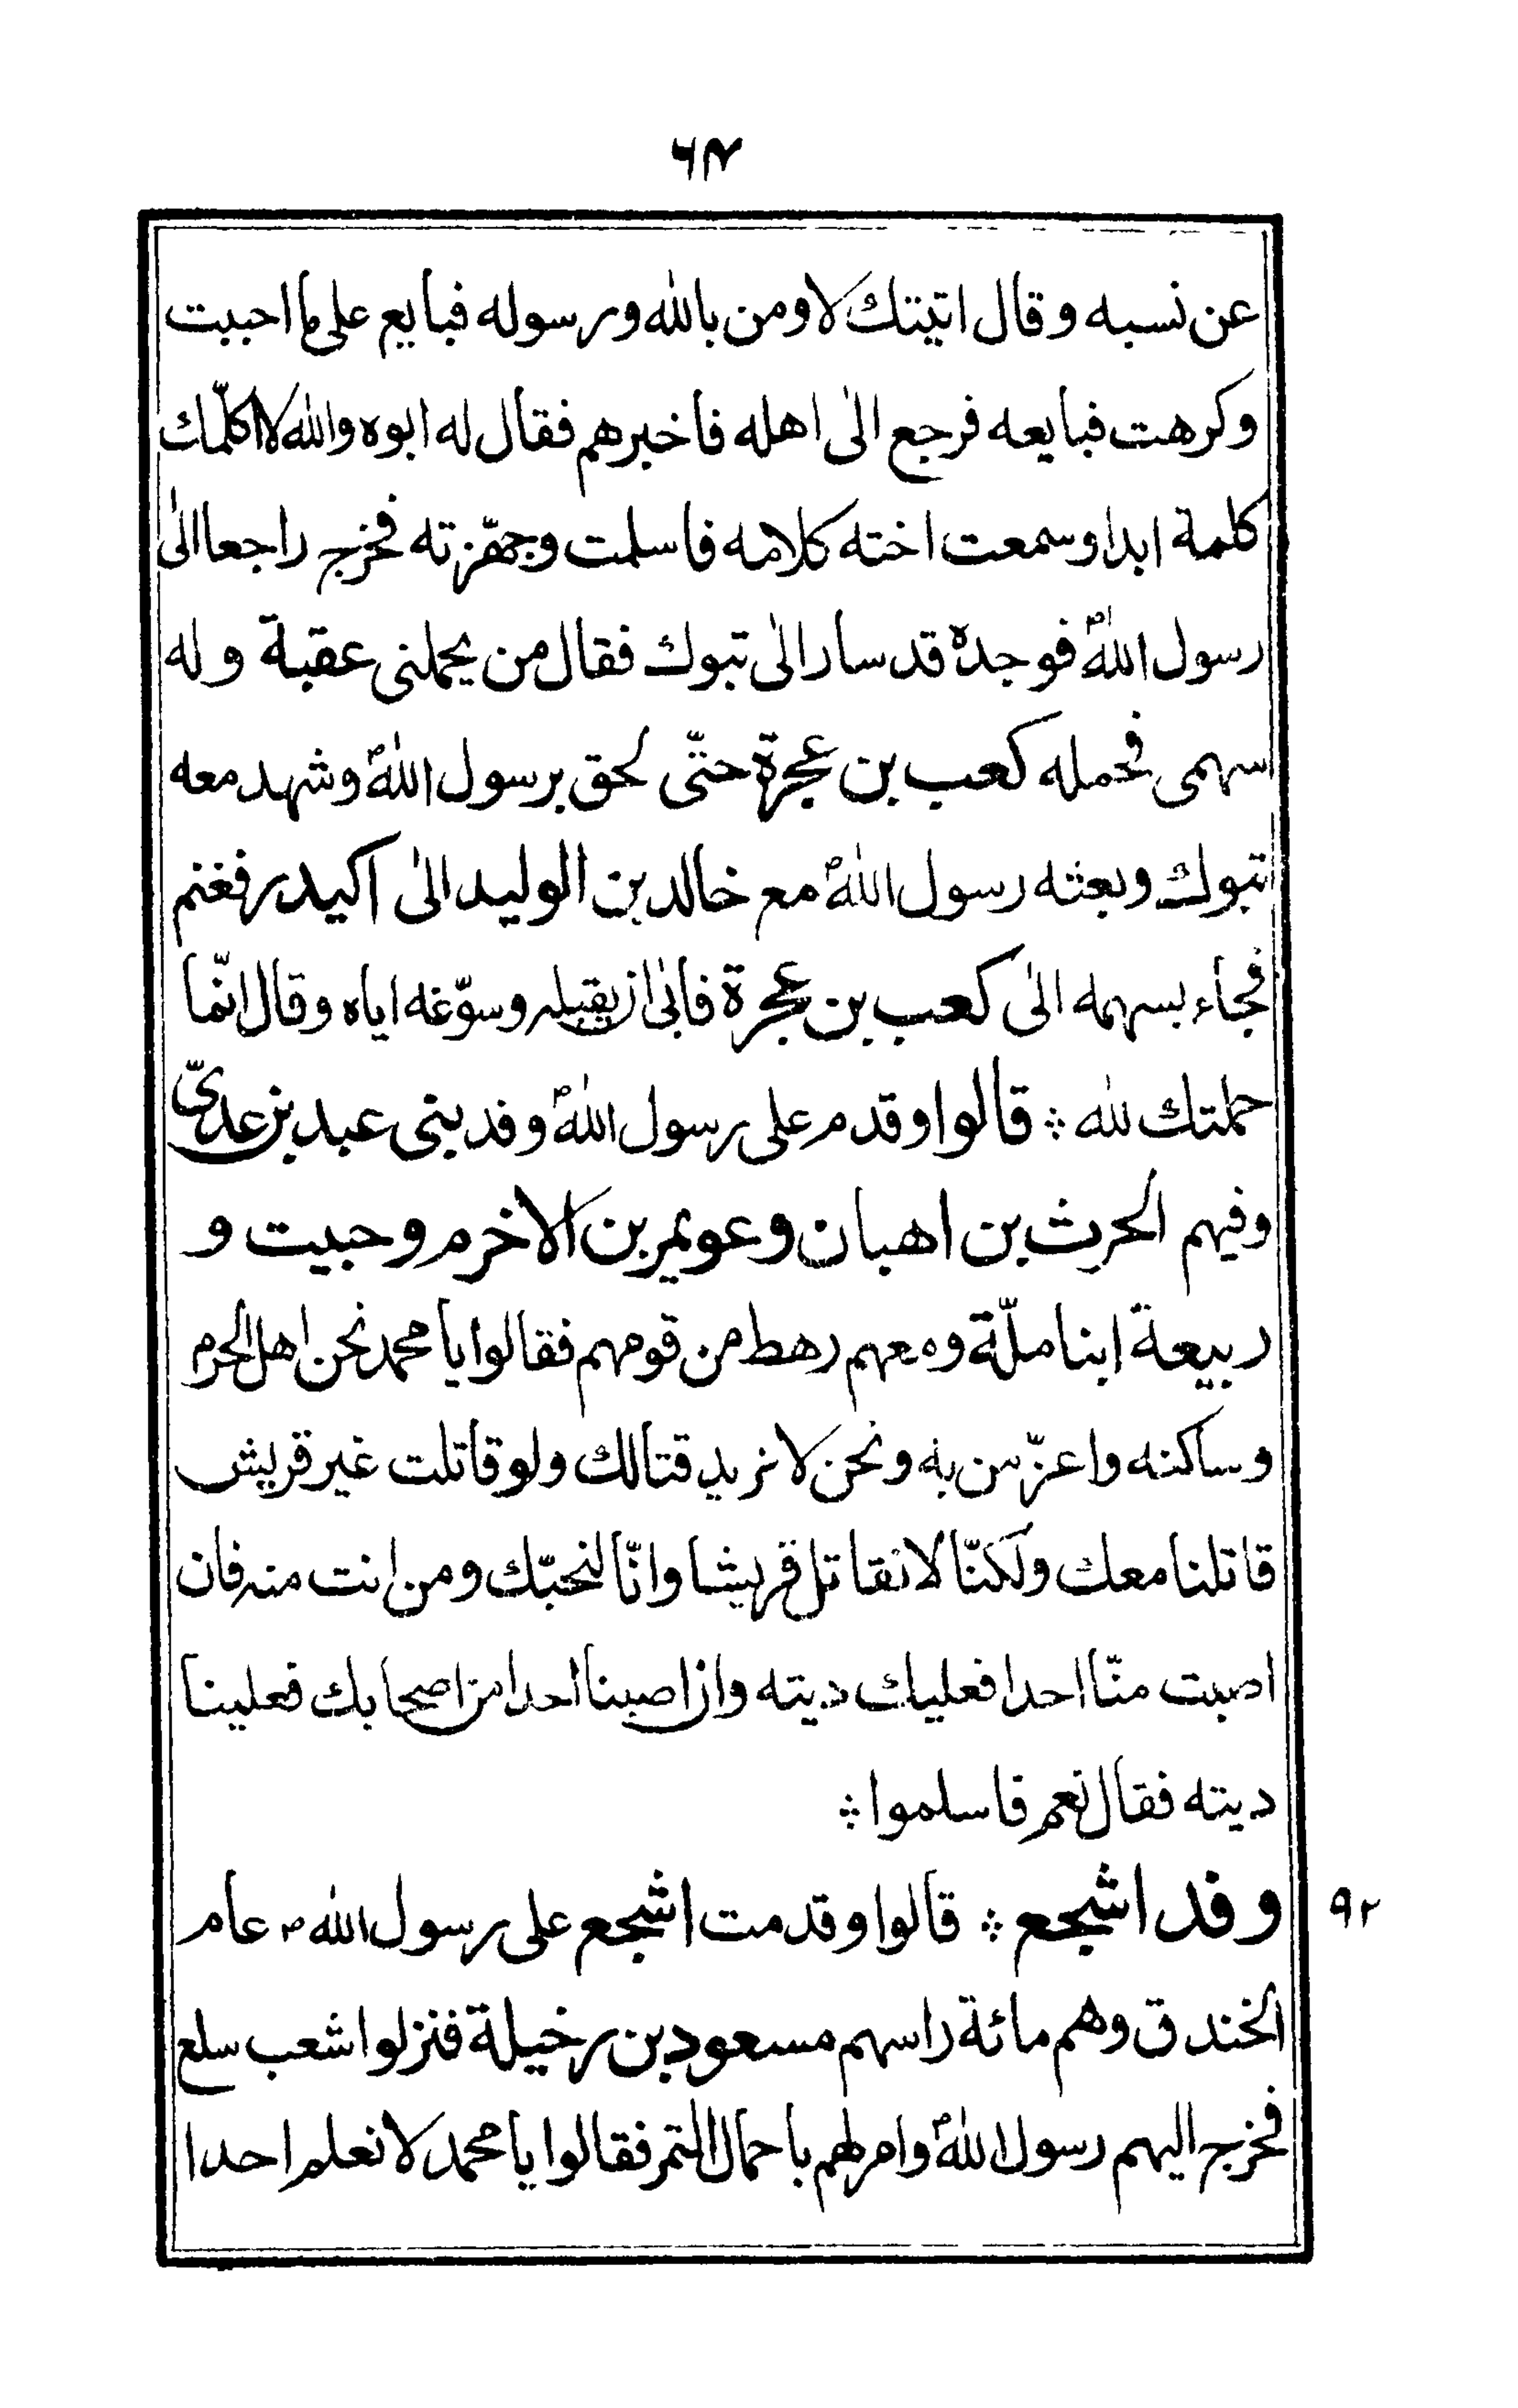 ٦٧
عن نسبه وقال اتيتك لاومن بالله ورسوله فبايع على ما احببت
وكرهت فبايعه فرجع الى اهله فاخبرهم فقال له ابوه والله لا اكلّمك
كلمة ابدا وسمعت اخته كلامه فاسلمت وجهّزته فخرج راجعا الى
رسول اللهؐ فوجده قد سار الى تبوك فقال من يحملنى عقبة وله
سهمى فحمله كعب بن عجرة حتّى لحق برسول اللهؐ وشهد معه
تبوك وبعثه رسول اللهؐ مع خالد بن الوليد الى اكيدر فغنم
فجاء بسهمه الى كعب بن عجرة فابى ان يقبله وسوّغه اياه وقال انّما
حملتك لله ؞ قالوا وقدم على رسول اللهؐ وفد بنى عبد بن عدىّ
وفيهم الحرث بن اهبان وعويمر بن الاخرم وحبيت و
ربيعة ابنا ملّة ومعهم رهط من قومهم فقالوا يا محمد نحن اهل الحرم
وساكنه واعزّ من به ونحن لا نريد قتالك ولو قاتلت غير قريش
قاتلنا معك ولكنّا لا نقاتل قريشا وانّا لنحبّك ومن انت منه فان
اصبت منّا احدا فعليك ديته وان اصبنا احدا من اصحابك فعلينا
ديته فقال نعم فاسلموا ؞
وفد اشجع ؞ قالوا وقدمت اشجع على رسول الله ص عام
٩٢
الخندق وهم مائة راسهم مسعود بن رخيلة فنزلوا شعب سلع
فخرج اليهم رسول اللهؐ وامر لهم باحمال التمر فقالوا يا محمد لا نعلم احدا